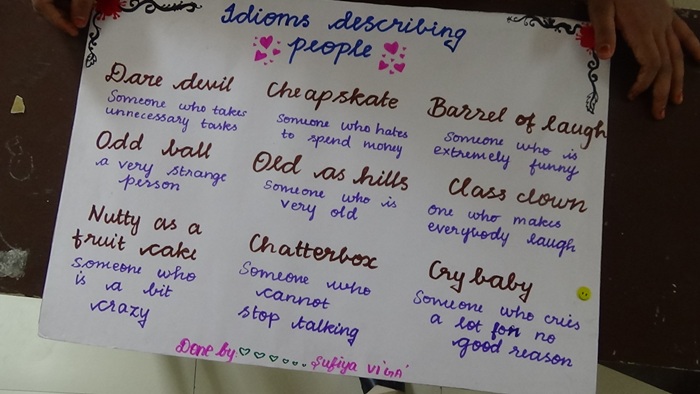 Idioms describing
people
Dare devil
Someone who takes
unnecessary tasks
Cheapskate
Someone who hates
to spend money
Barrel of laugh
Someone who is
extremely funny
Odd ball
a very strange
person
Old as hills
Someone who is
very old
Class clown
one who makes
everybody laugh
Nutty as a
fruit cake
Someone who
is a bit
crazy
Chatterbox
Someone who
cannot
stop talking
Cry baby
Someone who cries
a lot for no
good reason
Done by Sufiya VI 'A'